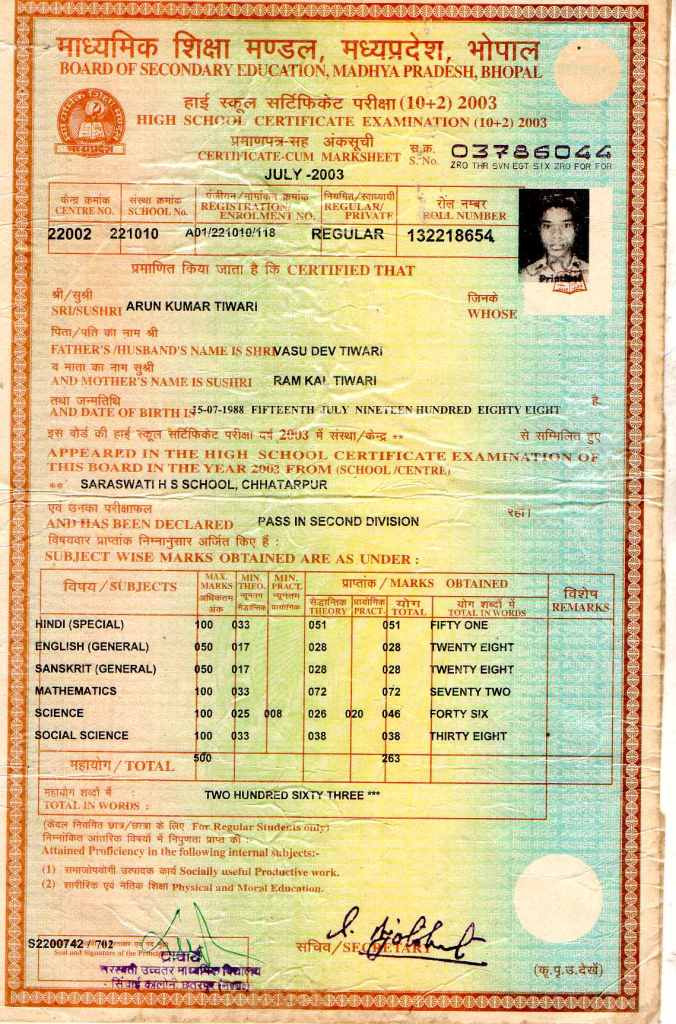 माध्यमिक शिक्षा मण्डल, मध्यप्रदेश, भोपाल
BOARD OF SECONDARY EDUCATION, MADHYA PRADESH, BHOPAL
हाई स्कूल सर्टिफिकेट परीक्षा (10+2) 2003
HIGH SCHOOL CERTIFICATE EXAMINATION (10+2) 2003
प्रमाणपत्र-सह अंकसूची
CERTIFICATE-CUM MARKSHEET
स.क्र.
S. No. 03786044
ZRO THR SVN EGT SIX ZRO FOR FOR
JULY -2003
केन्द्र क्रमांक संस्था क्रमांक पंजीयन/नामांकन क्रमांक नियमित/स्वाध्यायी रोल नम्बर
CENTRE NO. SCHOOL No. REGISTRATION/ ENROLMENT NO. REGULAR/ PRIVATE ROLL NUMBER
22002 221010 A01/221010/118 REGULAR 132218654
प्रमाणित किया जाता है कि CERTIFIED THAT
श्री/सुश्री जिनके
SRI/SUSHRI ARUN KUMAR TIWARI WHOSE
पिता/पति का नाम श्री
FATHER'S /HUSBAND'S NAME IS SHRI VASU DEV TIWARI
व माता का नाम सुश्री
AND MOTHER'S NAME IS SUSHRI RAM KALI TIWARI
तथा जन्मतिथि है
AND DATE OF BIRTH IS 15-07-1988 FIFTEENTH JULY NINETEEN HUNDRED EIGHTY EIGHT
इस बोर्ड की हाई स्कूल सर्टिफिकेट परीक्षा वर्ष 2003 में संस्था/केन्द्र ** से सम्मिलित हुए
APPEARED IN THE HIGH SCHOOL CERTIFICATE EXAMINATION OF
THIS BOARD IN THE YEAR 2003 FROM (SCHOOL /CENTRE)
** SARASWATI H S SCHOOL, CHHATARPUR
एवं उनका परीक्षाफल रहा।
AND HAS BEEN DECLARED PASS IN SECOND DIVISION
विषयवार प्राप्तांक निम्नानुसार अर्जित किए हैं :
SUBJECT WISE MARKS OBTAINED ARE AS UNDER :
विषय/SUBJECTS MAX. MARKS अधिकतम अंक MIN. THEO. न्यूनतम सैद्धान्तिक MIN. PRACT. न्यूनतम प्रायोगिक प्राप्तांक/MARKS OBTAINED विशेष REMARKS
सैद्धान्तिक THEORY प्रायोगिक PRACT. योग TOTAL योग शब्दों में TOTAL IN WORDS
HINDI (SPECIAL) 100 033 051 051 FIFTY ONE
ENGLISH (GENERAL) 050 017 028 028 TWENTY EIGHT
SANSKRIT (GENERAL) 050 017 028 028 TWENTY EIGHT
MATHEMATICS 100 033 072 072 SEVENTY TWO
SCIENCE 100 025 008 026 020 046 FORTY SIX
SOCIAL SCIENCE 100 033 038 038 THIRTY EIGHT
महायोग/TOTAL 500 263
महायोग शब्दों में
TOTAL IN WORDS : TWO HUNDRED SIXTY THREE ***
(केवल नियमित छात्र/छात्रा के लिए For Regular Students only)
निम्नांकित आंतरिक विषयों में निपुणता प्राप्त की :
Attained Proficiency in the following internal subjects:-
(1) समाजोपयोगी उत्पादक कार्य Socially useful Productive work.
(2) शारीरिक एवं नैतिक शिक्षा Physical and Moral Education.
S2200742 / 702
Seal and Signature of the Principal
प्राचार्य
सरस्वती उच्चतर माध्यमिक विद्यालय
सिंचाई कालोनी, छतरपुर
सचिव/SECRETARY
(कृ.पृ.उ.देखें)